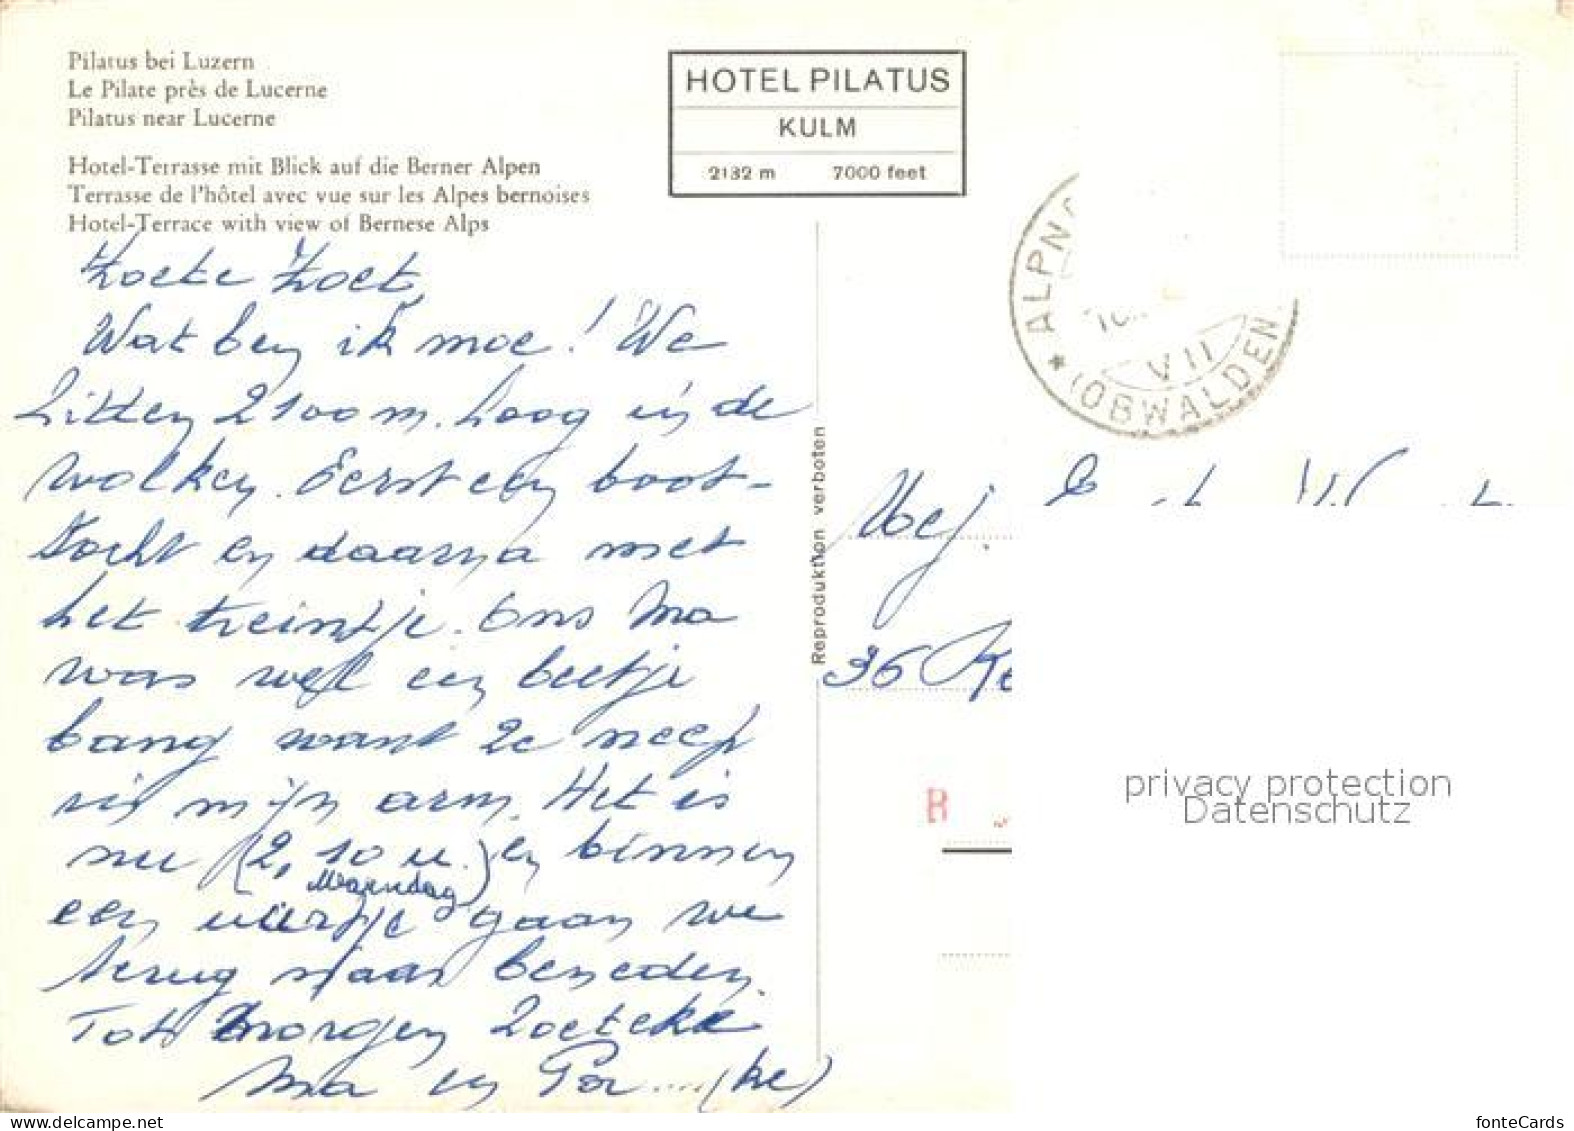 Pilatus bei Luzern
Le Pilate près de Lucerne
Pilatus near Lucerne
Hotel-Terrasse mit Blick auf die Berner Alpen
Terrasse de l'hôtel avec vue sur les Alpes bernoises
Hotel-Terrace with view of Bernese Alps
HOTEL PILATUS
KULM
2132 m 7000 feet
ALPN
VII
* (OBWALDEN
Zoete Zoet,
Wat ben ik moe! We
zitten 2100 m. hoog in de
wolken. Eerst een boot-
tocht en daarna met
het treintje. Ons Ma
was wel een beetje
bang want ze neep
in mijn arm. Het is
nu (2,10 u.) en binnen
Maandag
een uurtje gaan we
terug naar beneden.
Tot morgen
Ma en Pa....(ke)
Reproduktion verboten
Mej.
36
B
privacy protection
Datenschutz
www.delcampe.net
fonteCards